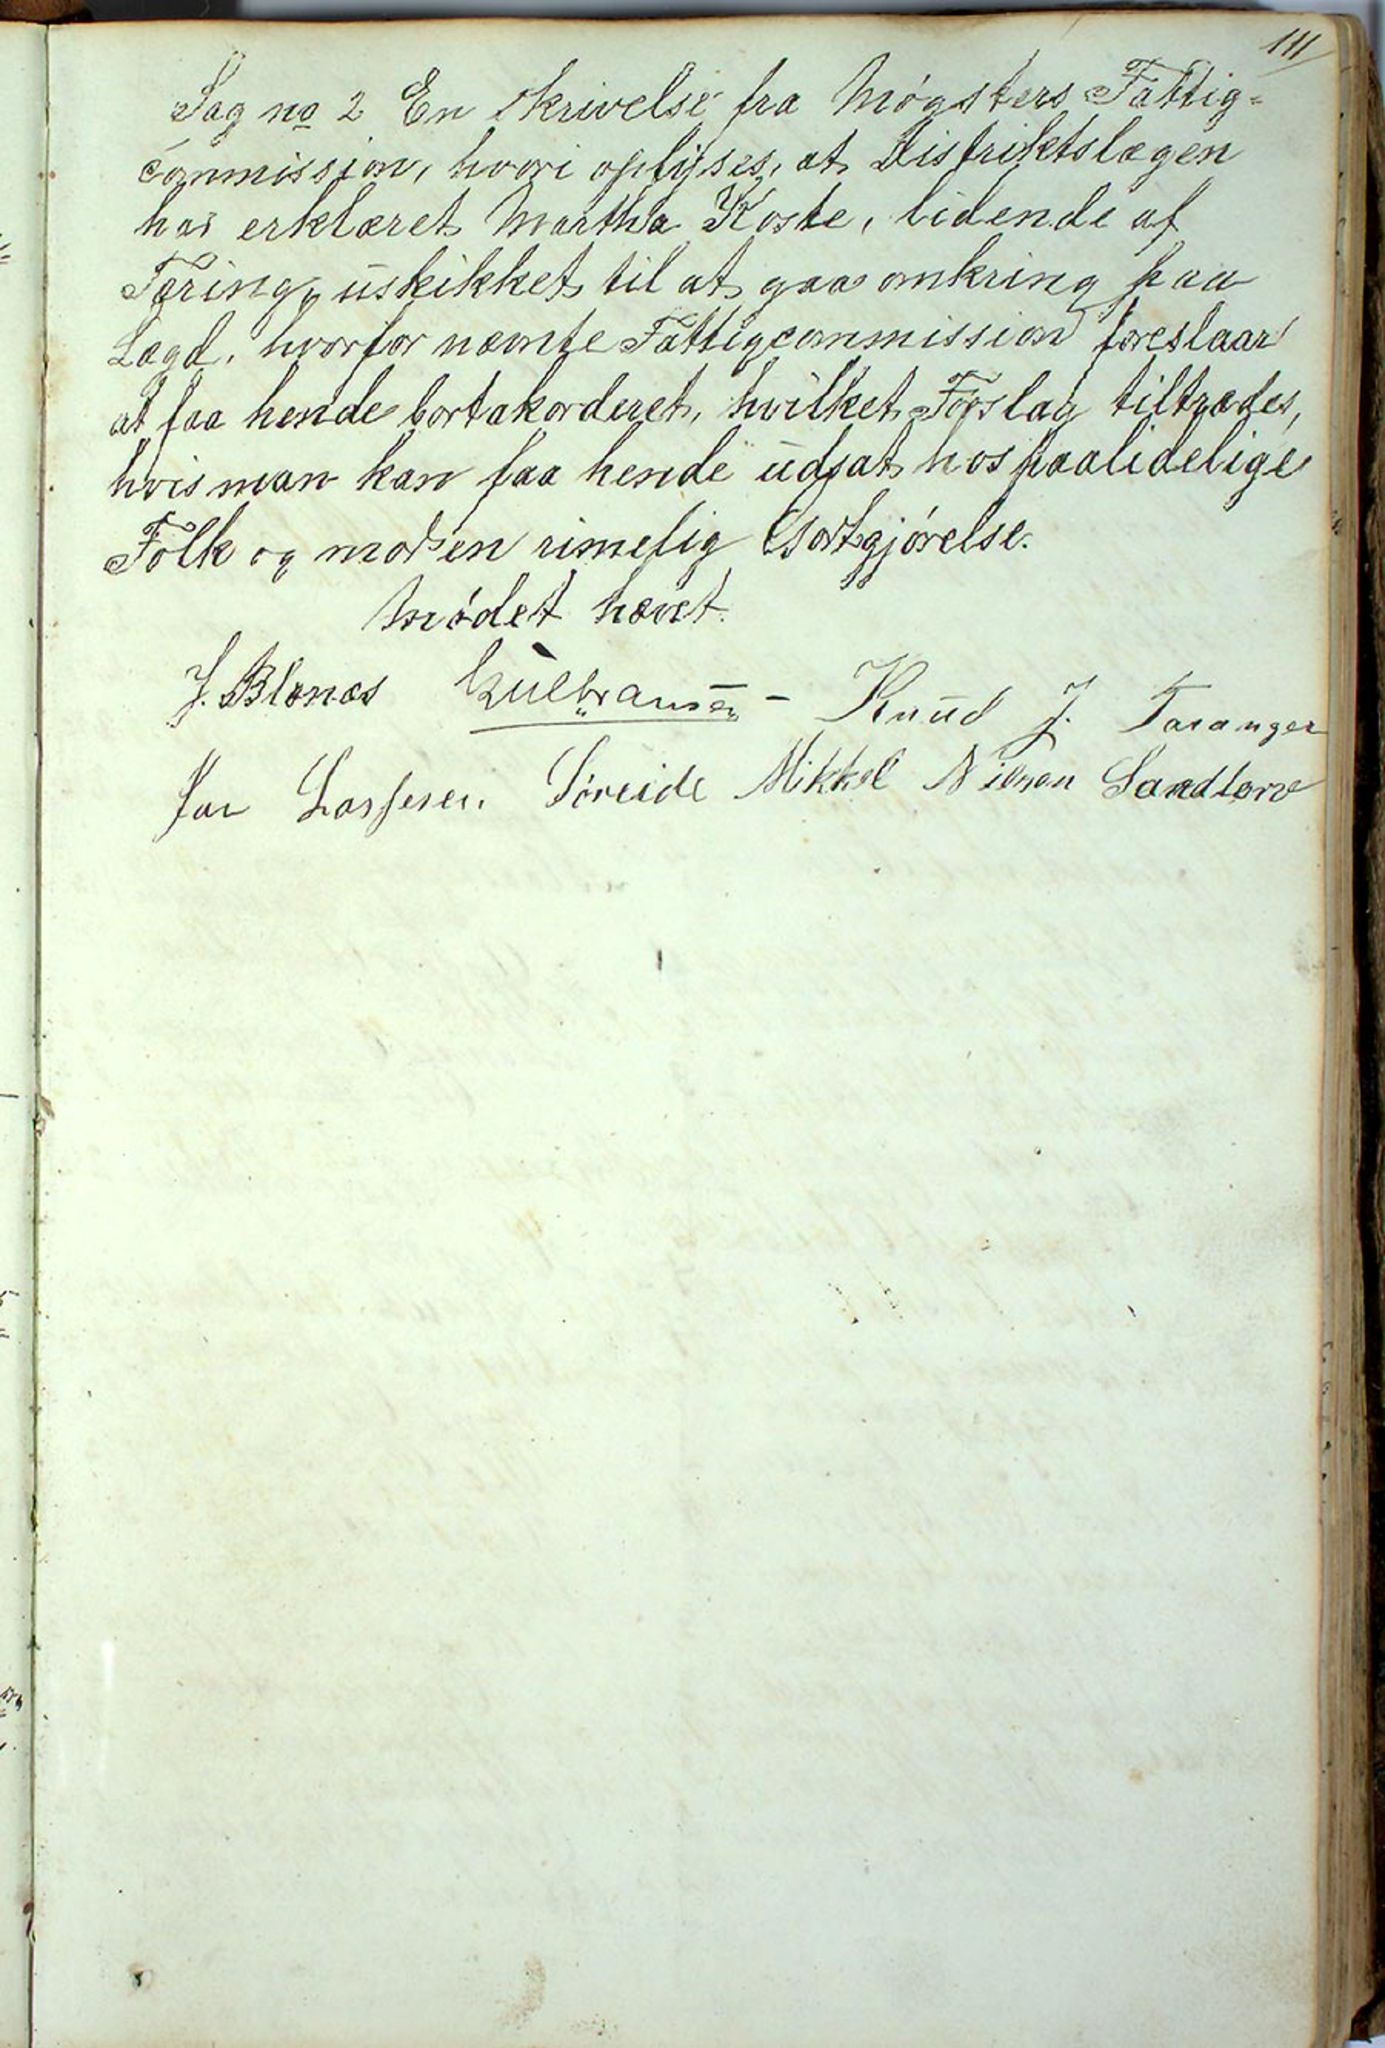 111
Sag no 2 En Skrivelse fra Møgsters Fattig-
commission, hvori oplyses, at Distriktslægen
har erklæret Martha Koste, lidende af
Tæring, uskikket til at gaa omkring paa
Lægd, hvorfor næmte Fattigcommission foreslaar
at faa hende bortakorderet, hvilket Forslag tiltrædes,
hvis man kan faa hende udsat hos paalidelige
Folk og mod en rimelig Godtgjørelse.
Mødet hævet.
J. Blænæs Gulbransen - Knud J. Taranger
Lassesen Søreide Mikkel Nilsen Sandtorv